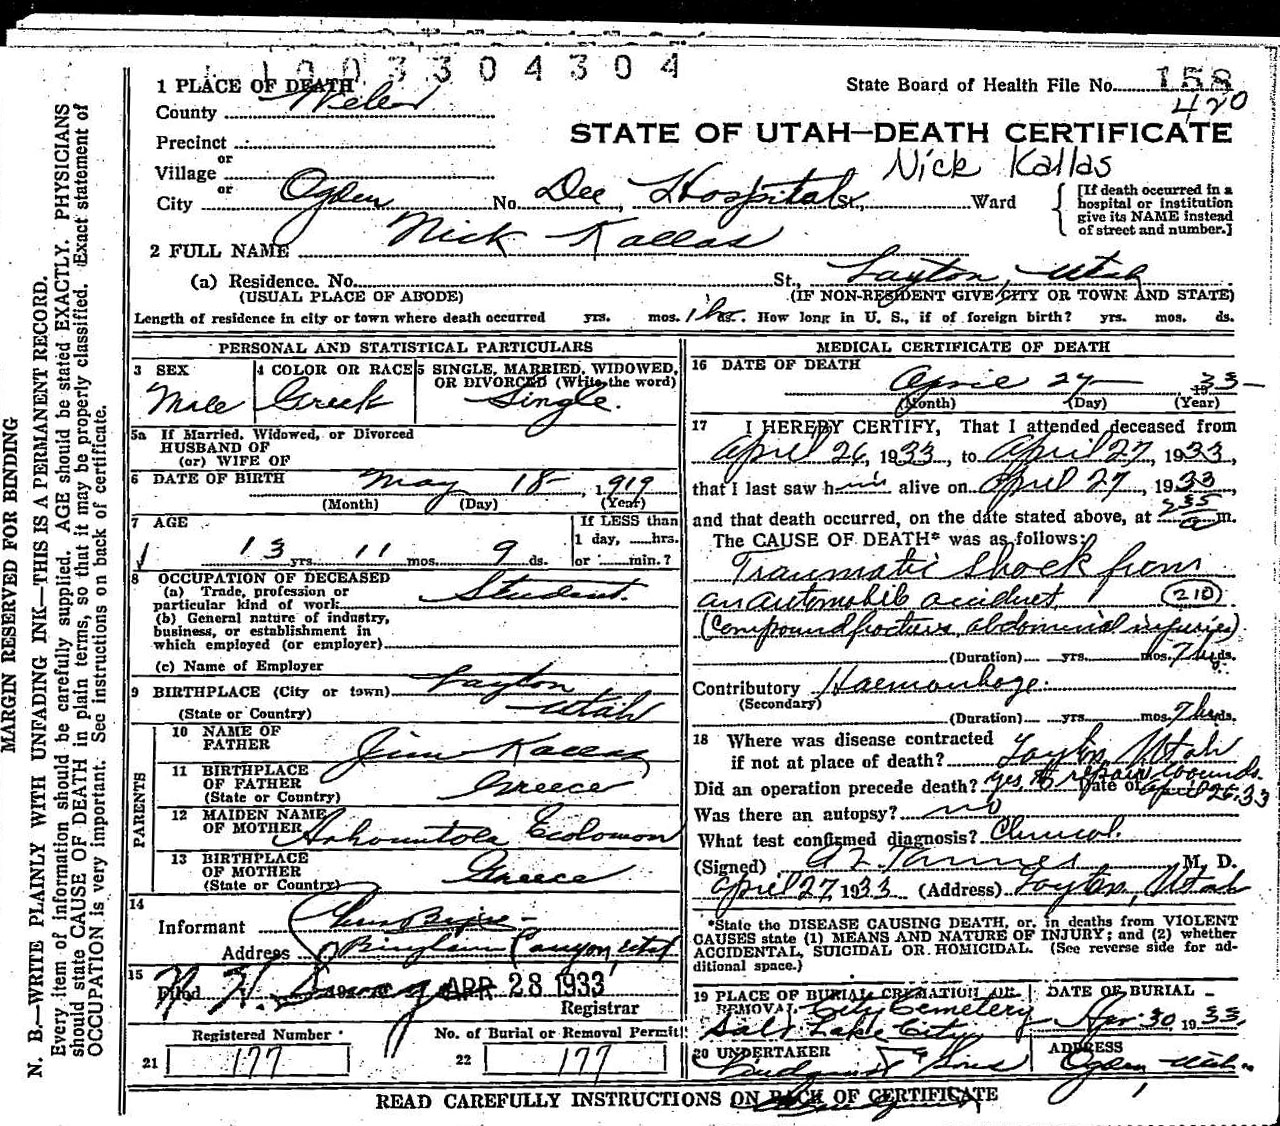 1003304304
1 PLACE OF DEATH
State Board of Health File No. 158
420
County Weber
STATE OF UTAH—DEATH CERTIFICATE
Precinct
or
Nick Kallas
Village
or
City Ogden No. Dee Hospital St., Ward
[If death occurred in a
hospital or institution
give its NAME instead
of street and number.]
2 FULL NAME Nick Kallas
(a) Residence. No. St., Layton, Utah
(USUAL PLACE OF ABODE) (IF NON-RESIDENT GIVE CITY OR TOWN AND STATE)
Length of residence in city or town where death occurred yrs. mos. 1 hr. ds. How long in U. S., if of foreign birth? yrs. mos. ds.
PERSONAL AND STATISTICAL PARTICULARS
3 SEX
Male
4 COLOR OR RACE
Greek
5 SINGLE, MARRIED, WIDOWED,
OR DIVORCED (Write the word)
Single.
5a If Married, Widowed, or Divorced
HUSBAND OF
(or) WIFE OF
6 DATE OF BIRTH May 18 - , 1919
(Month) (Day) (Year)
7 AGE
13 yrs. 11 mos. 9 ds.
If LESS than
1 day, hrs.
or min.?
8 OCCUPATION OF DECEASED
(a) Trade, profession or
particular kind of work Student.
(b) General nature of industry,
business, or establishment in
which employed (or employer)
(c) Name of Employer
9 BIRTHPLACE (City or town) Layton
(State or Country) Utah
PARENTS
10 NAME OF
FATHER Jim Kallas
11 BIRTHPLACE
OF FATHER Greece
(State or Country)
12 MAIDEN NAME
OF MOTHER
13 BIRTHPLACE
OF MOTHER Greece
(State or Country)
14
Informant
Address Bingham Canyon, Utah
15
Filed APR 28 1933
Registrar
Registered Number
21 177
No. of Burial or Removal Permit
22 177
MEDICAL CERTIFICATE OF DEATH
16 DATE OF DEATH
April 27 - 33 -
(Month) (Day) (Year)
17 I HEREBY CERTIFY, That I attended deceased from
April 26, 1933, to April 27, 1933,
that I last saw him alive on April 27, 1933,
and that death occurred, on the date stated above, at 2 35 a m.
The CAUSE OF DEATH* was as follows:
Traumatic Shock from
an automobile accident (210)
(Compound fractures, abdominal injuries)
(Duration) yrs. mos. 7 hrs. ds.
Contributory Haemorrhage.
(Secondary)
(Duration) yrs. mos. 7 hrs. ds.
18 Where was disease contracted
if not at place of death? Layton, Utah
Did an operation precede death? yes to repair wounds. Date of April 26, 33
Was there an autopsy? no
What test confirmed diagnosis? Clinical.
(Signed) A Z Tanner M. D.
April 27, 1933 (Address) Layton, Utah
*State the DISEASE CAUSING DEATH, or, in deaths from VIOLENT
CAUSES state (1) MEANS AND NATURE OF INJURY; and (2) whether
ACCIDENTAL, SUICIDAL OR HOMICIDAL. (See reverse side for ad-
ditional space.)
19 PLACE OF BURIAL CREMATION OR
REMOVAL City Cemetery
Salt Lake City
DATE OF BURIAL
Apr. 30 1933
20 UNDERTAKER
& Sons
ADDRESS
Ogden Utah.
READ CAREFULLY INSTRUCTIONS ON BACK OF CERTIFICATE
MARGIN RESERVED FOR BINDING
N. B.—WRITE PLAINLY WITH UNFADING INK—THIS IS A PERMANENT RECORD.
Every item of information should be carefully supplied. AGE should be stated EXACTLY. PHYSICIANS
should state CAUSE OF DEATH in plain terms, so that it may be properly classified. Exact statement of
OCCUPATION is very important. See instructions on back of certificate.